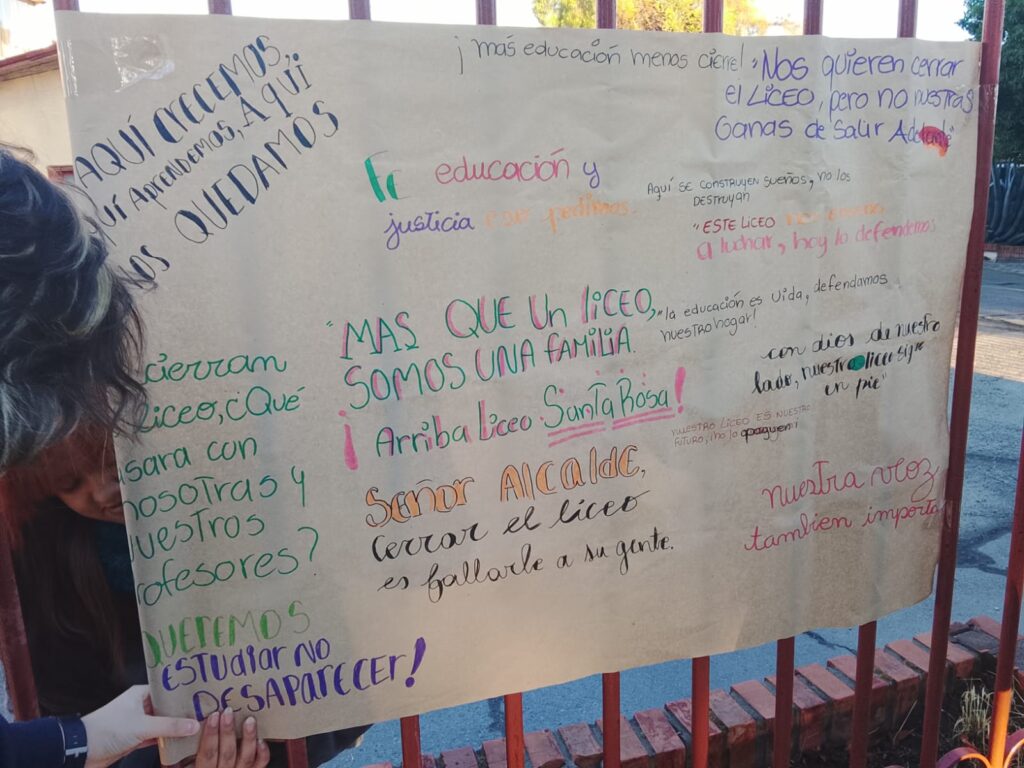 AQUÍ CRECEMOS,
UÍ Aprendemos, AQUÍ
NOS QUEDAMOS
¡más educación menos cierre!
"NOS quieren cerrar
el LICEO, pero no nuestras
Ganas de Salir Adelante"
educación y
justicia pedimos
AQUÍ SE CONSTRUYEN SUEÑOS, NO LOS
DESTRUYAN
"ESTE LICEO nos enseñó
a luchar, hoy lo defendemos
"MAS QUE Un liCEO,
SOMOS UNA FAMILIA.
¡Arriba Liceo SantaRosa!
"la educación es vida, defendamos
nuestro hogar!
con dios de nuestro
lado, nuestro liceo sigue
en pie"
NUESTRO LICEO ES NUESTRO
FUTURO, ¡no lo apaguen!
cierran
liceo, ¿Qué
sara con
nosotras y
uestros
rofesores?
Señor Alcalde,
Cerrar el liceo
es fallarle a su gente.
nuestra voz
tambien importa
QUEREMOS
ESTUDIAR NO
DESAPARECER!